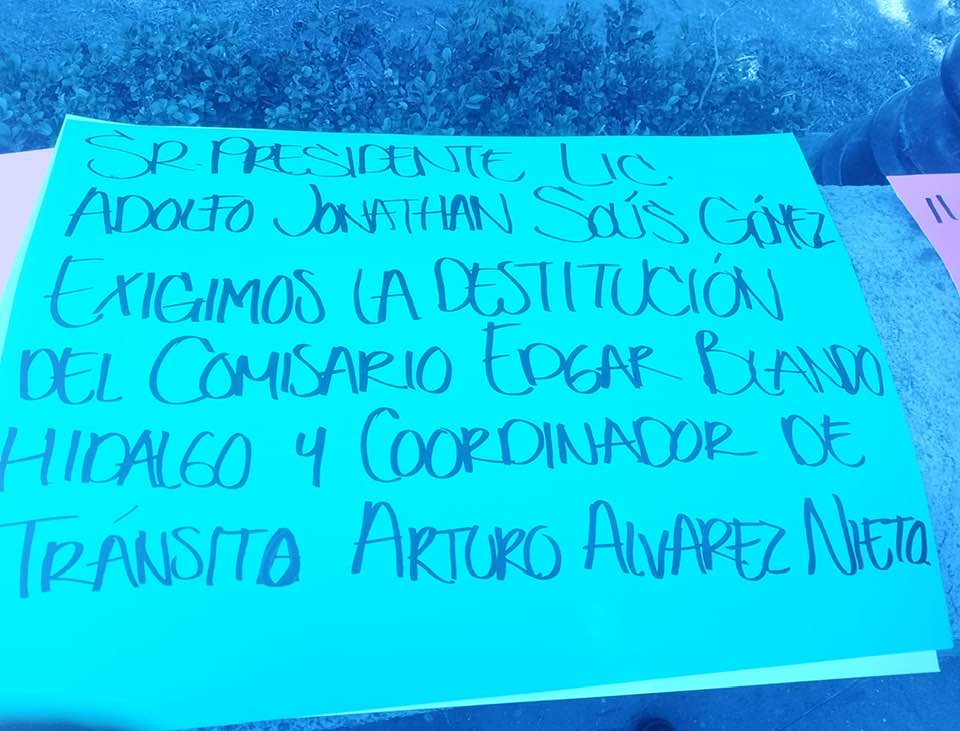 SR. PRESIDENTE LIC.
ADOLFO JONATHAN SOLÍS GÓMEZ
EXIGIMOS LA DESTITUCIÓN
DEL COMISARIO EDGAR BLANDO
HIDALGO Y COORDINADOR DE
TRÁNSITO ARTURO ALVAREZ NIETO